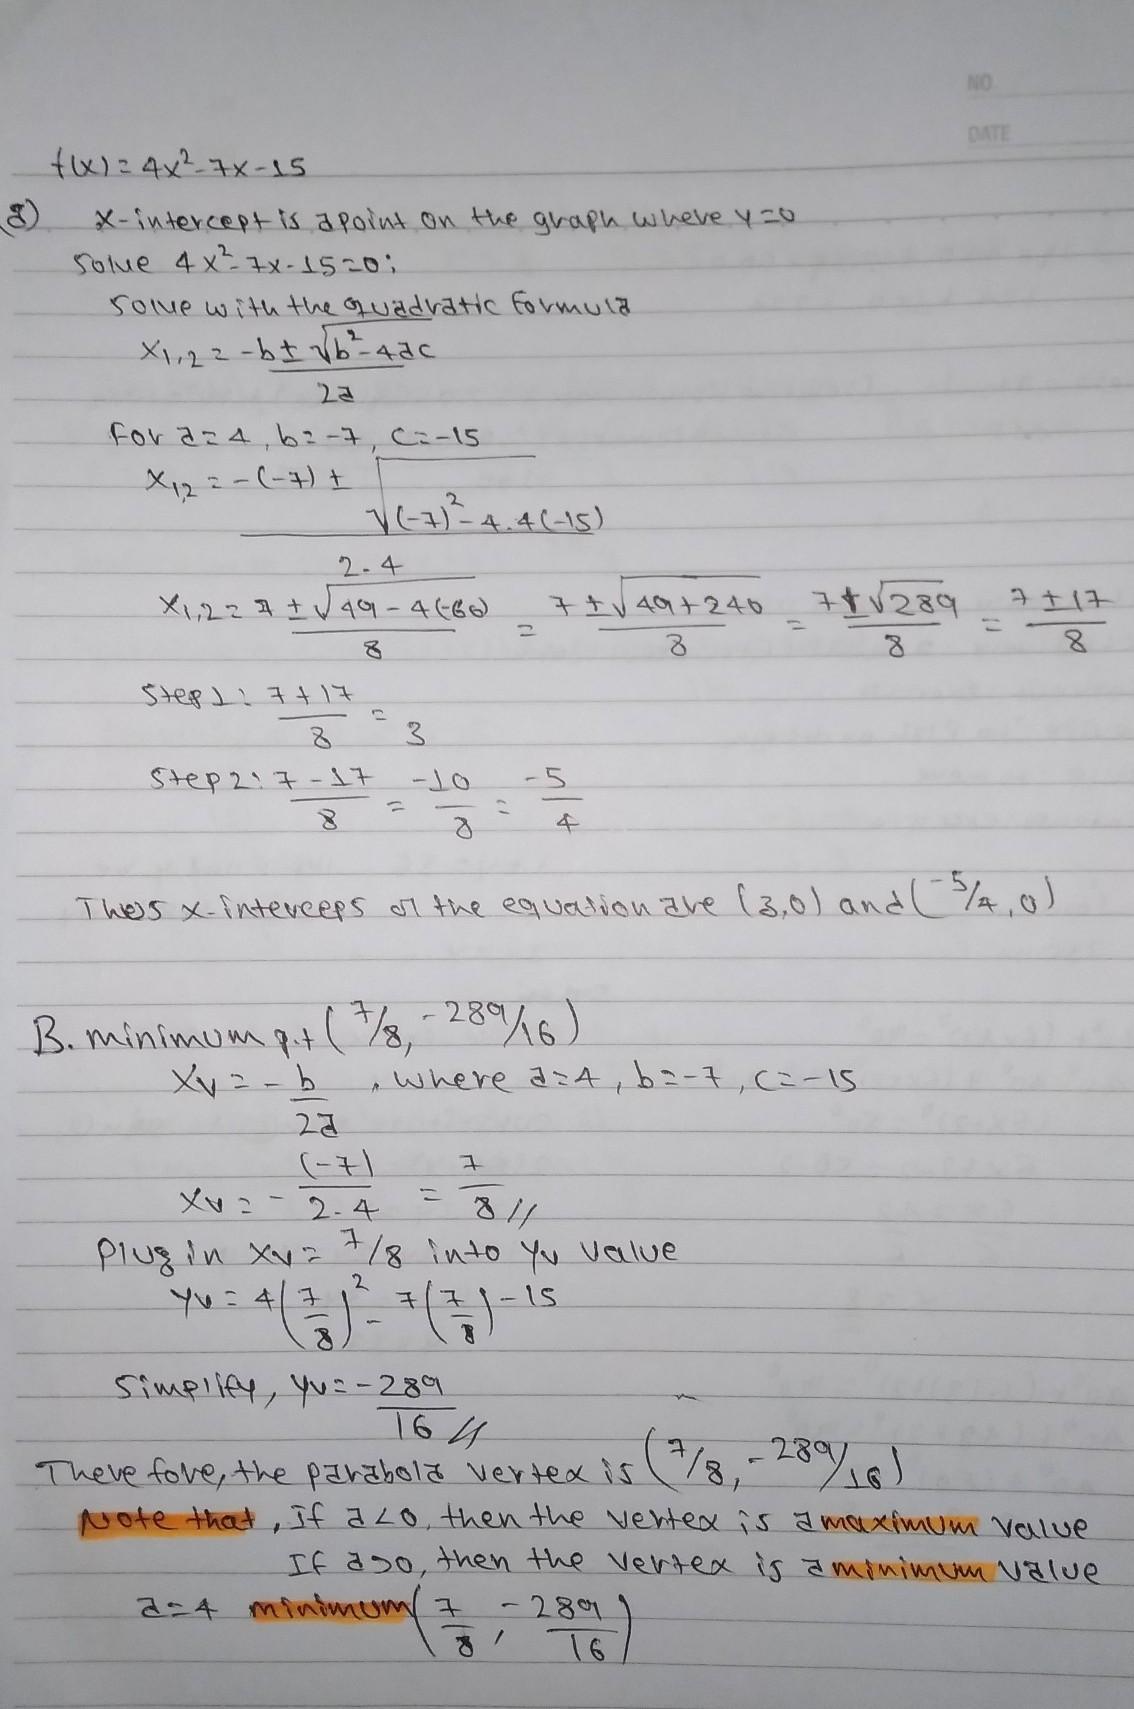 NO
DATE
f(x) = 4x²-7x-15
(a) x-intercept is a point on the graph where y=0
Solve 4x²-7x-15=0;
solve with the quadratic formula
x1,2 = -b ± √b²-4ac
2a
For a=4, b=-7, c=-15
x1,2 = -(-7) ±
√(-7)²-4.4(-15)
2.4
x1,2 = 7 ± √49-4(-60) / 8 = 7 ± √49+240 / 8 = 7 ± √289 / 8 = 7 ± 17 / 8
Step 1: 7+17 / 8 = 3
Step 2: 7-17 / 8 = -10 / 8 = -5 / 4
Thes x-interceps of the equation are (3,0) and (-5/4,0)
B. minimum p.t (7/8, -289/16)
Xv = -b / 2a, where a=4, b=-7, c=-15
Xv = - (-7) / 2.4 = 7 / 8 //
Plug in Xv = 7/8 into Yv value
Yv = 4(7/8)² - 7(7/8) -15
Simplify, Yv = -289 / 16 //
Therefore, the parabola vertex is (7/8, -289/16)
Note that, If a<0, then the vertex is a maximum value
If a>0, then the vertex is a minimum value
a=4 minimum (7/8, -289/16)